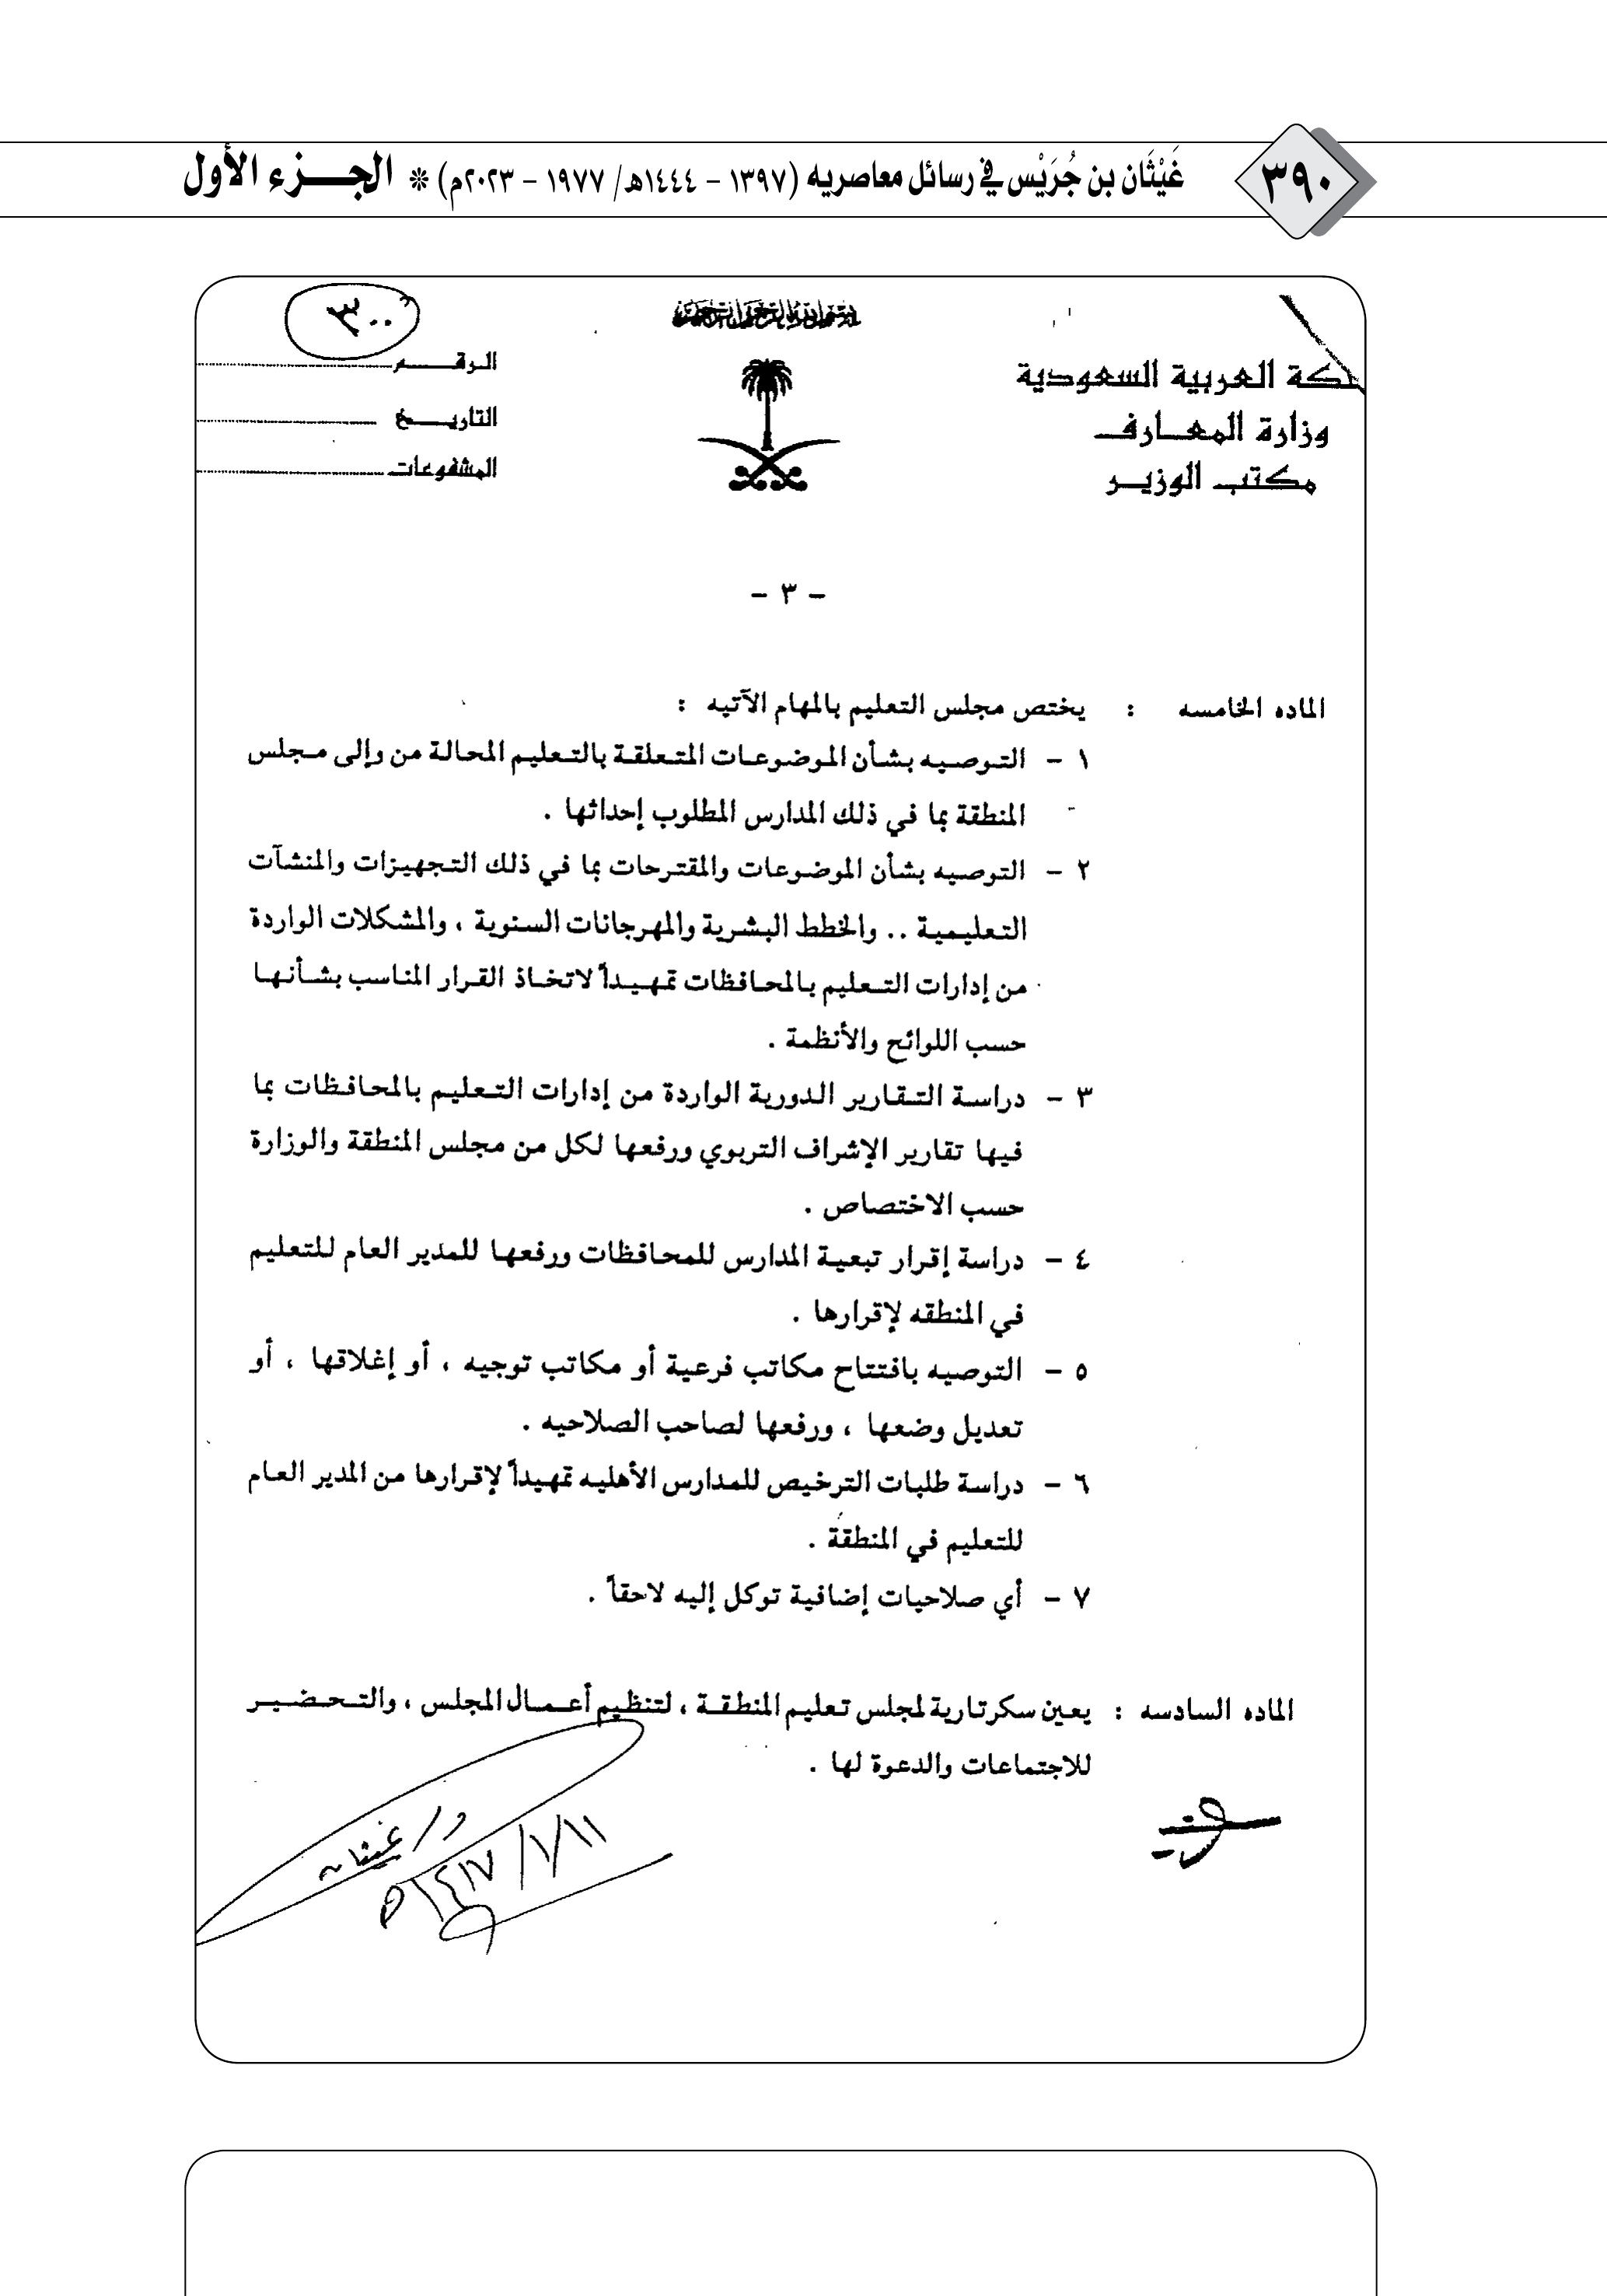 ٣٩٠
غَيْثَان بن جُرَيْس في رسائل معاصريه (١٣٩٧ - ١٤٤٤هـ/ ١٩٧٧ - ٢٠٢٣م) * الجـــزء الأول
٣٠٠
بسم الله الرحمن الرحيم
ـلكة العربية السعودية
وزارة المعـارف
مكتب الوزيـر
الـرقـــم
التاريـــخ
المشفوعات
- ٣ -
الماده الخامسه : يختص مجلس التعليم بالمهام الآتيه :
١ - التوصيه بشأن الموضوعات المتعلقة بالتعليم المحالة من وإلى مجلس
المنطقة بما في ذلك المدارس المطلوب إحداثها .
٢ - التوصيه بشأن الموضوعات والمقترحات بما في ذلك التجهيزات والمنشآت
التعليمية .. والخطط البشرية والمهرجانات السنوية ، والمشكلات الواردة
من إدارات التعليم بالمحافظات تمهيداً لاتخاذ القرار المناسب بشأنها
حسب اللوائح والأنظمة .
٣ - دراسة التقارير الدورية الواردة من إدارات التعليم بالمحافظات بما
فيها تقارير الإشراف التربوي ورفعها لكل من مجلس المنطقة والوزارة
حسب الاختصاص .
٤ - دراسة إقرار تبعية المدارس للمحافظات ورفعها للمدير العام للتعليم
في المنطقه لإقرارها .
٥ - التوصيه بافتتاح مكاتب فرعية أو مكاتب توجيه ، أو إغلاقها ، أو
تعديل وضعها ، ورفعها لصاحب الصلاحيه .
٦ - دراسة طلبات الترخيص للمدارس الأهليه تمهيداً لإقرارها من المدير العام
للتعليم في المنطقة .
٧ - أي صلاحيات إضافية توكل إليه لاحقاً .
الماده السادسه : يعين سكرتارية لمجلس تعليم المنطقـة ، لتنظيم أعـمـال المجلس ، والتـحـضـيـر
للاجتماعات والدعوة لها .
د/ غيثان
١١/١/١٤١٧هـ